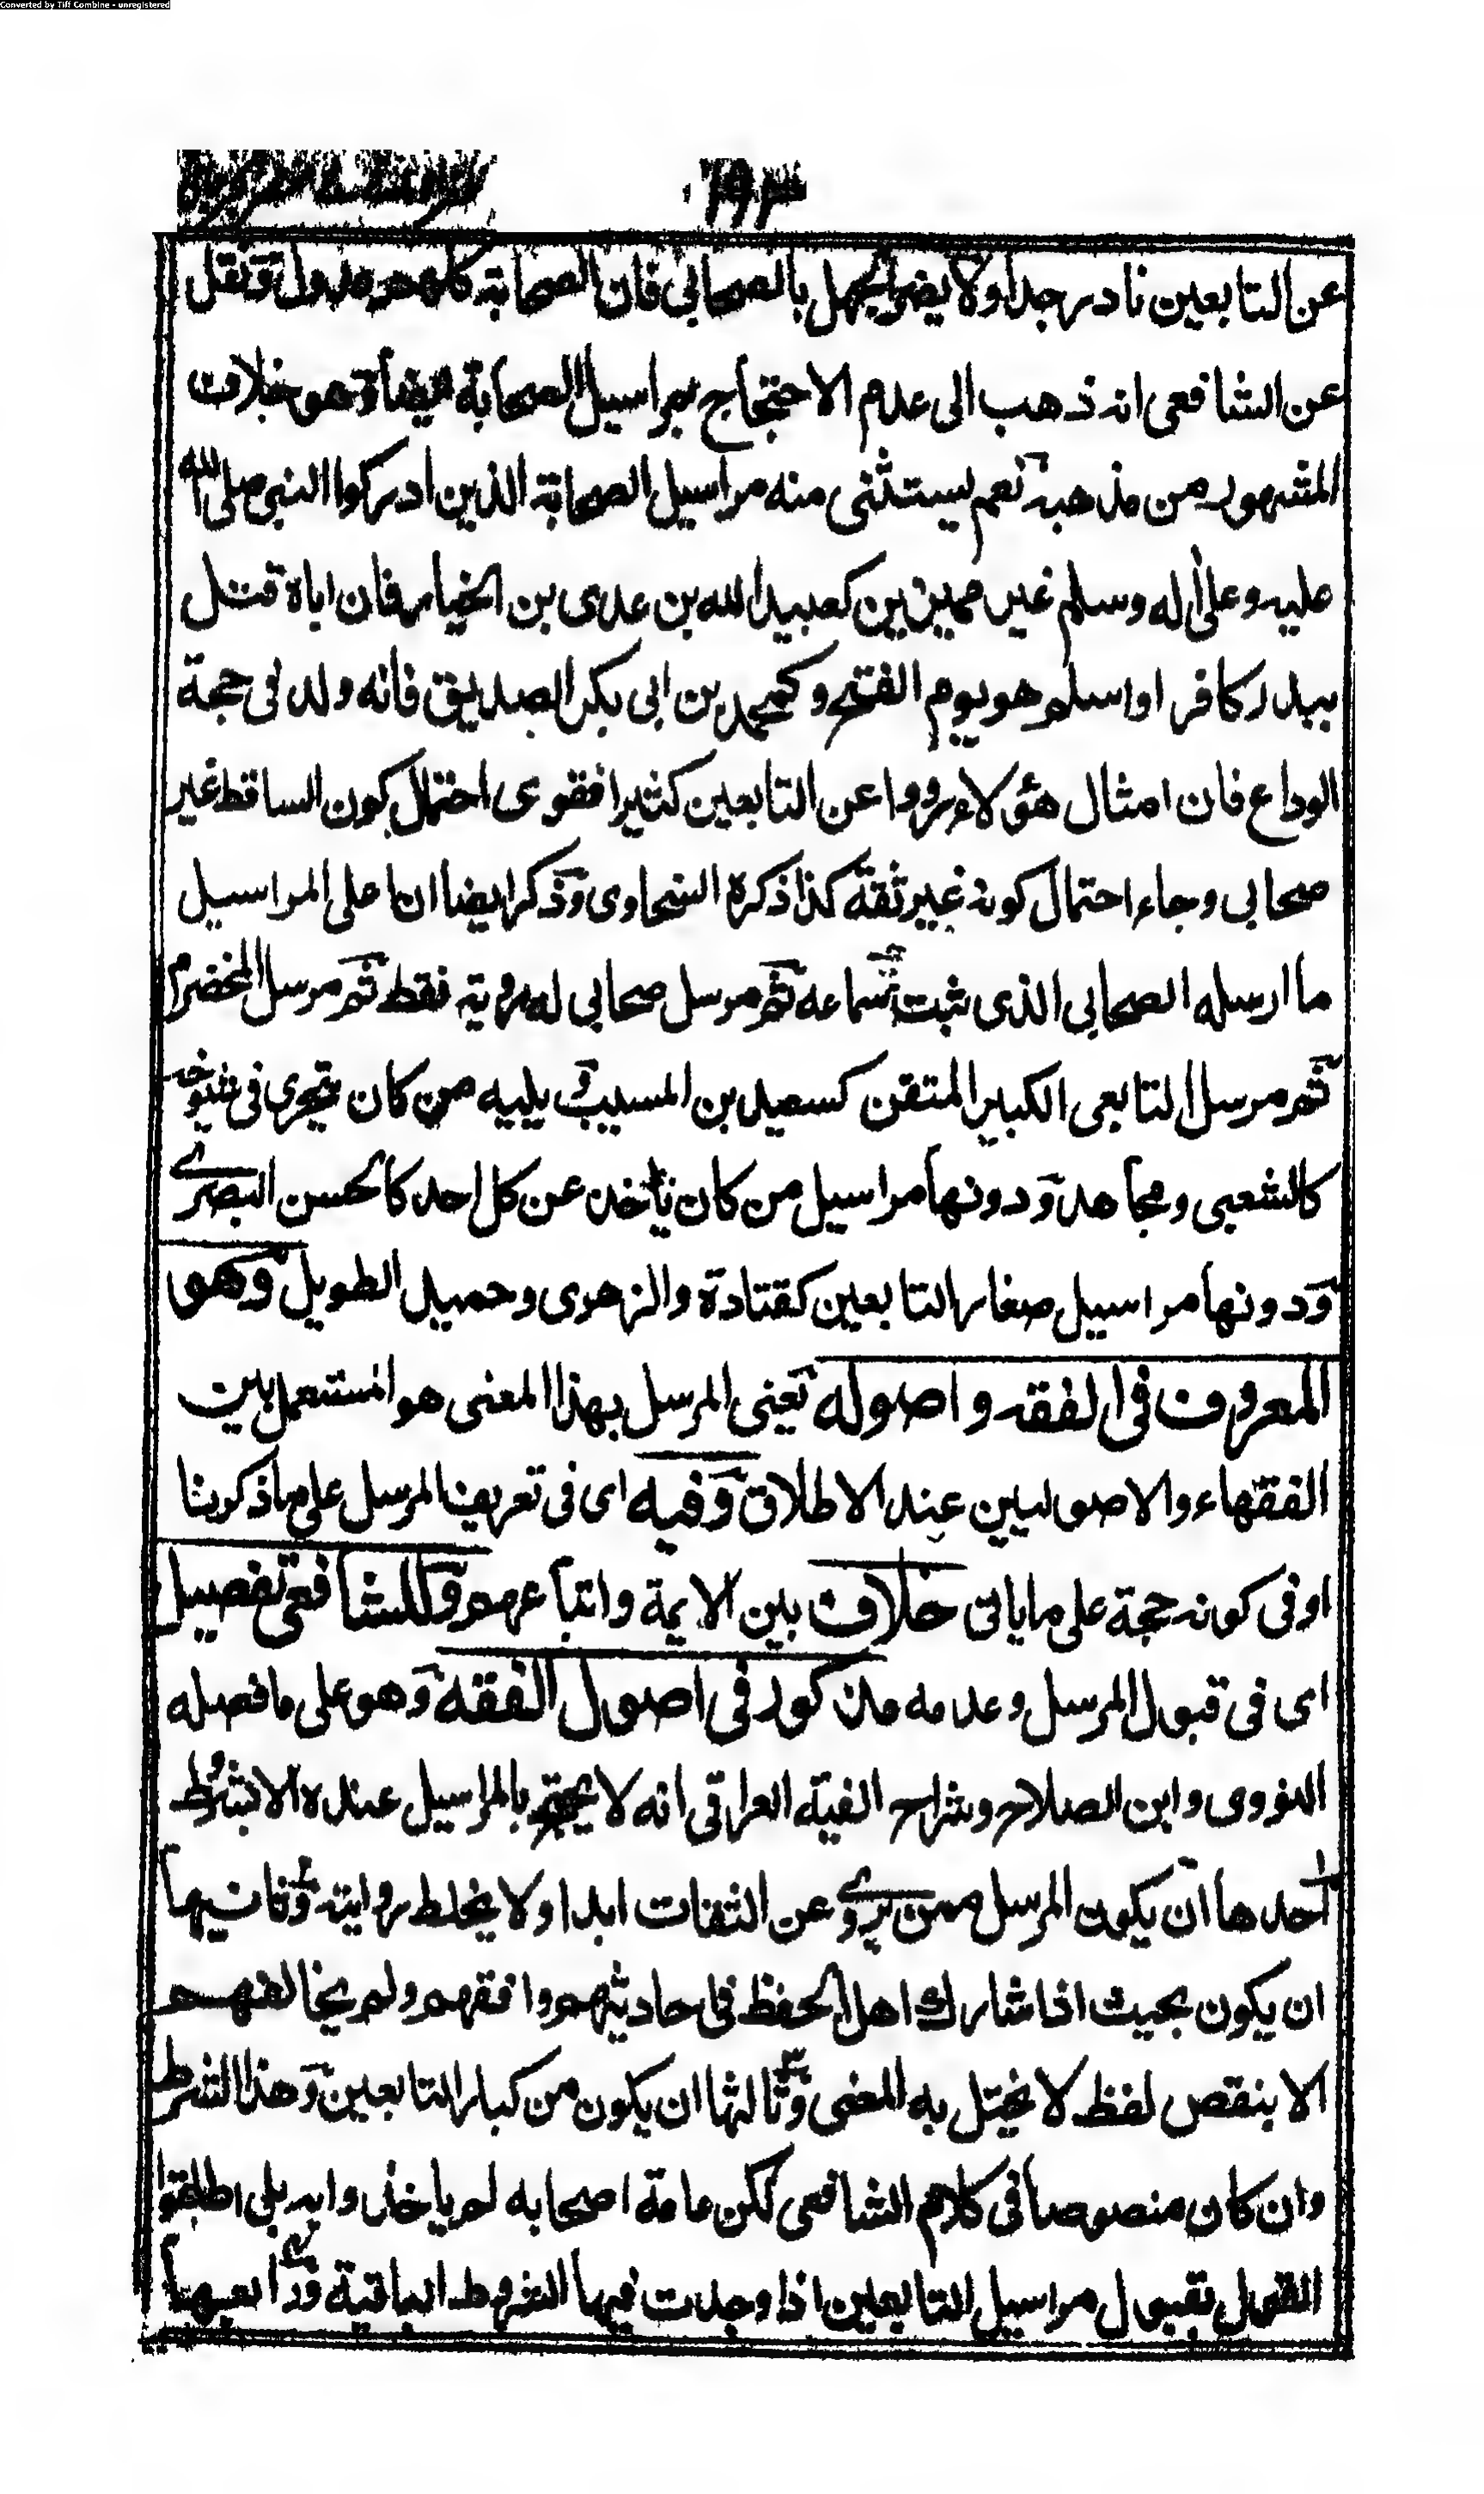 Converted by Tiff Combine - unregistered
عن التابعين نادر جدا ولا يضر الجهل بالصحابي فان الصحابة كلهم عدول ونقل
عن الشافعي انه ذهب الى عدم الاحتجاج بمراسيل الصحابة ايضا وهو خلاف
المشهور من مذهبه نعم يستثنى منه مراسيل الصحابة الذين ادركوا النبي صلى الله
عليه وعلى اله وسلم غير مميزين كعبيد الله بن عدى بن الخيار فان اباه قتل
ببدر كافرا واسلم هو يوم الفتح وكمحمد بن ابى بكر الصديق فانه ولد فى حجة
الوداع فان امثال هؤلاء رووا عن التابعين كثيرا فقوى احتمال كون الساقط غير
صحابى وجاء احتمال كونه غير ثقة كذا ذكره السخاوى وذكر ايضا ان اعلى المراسيل
ما ارسله الصحابى الذى ثبت سماعه ثم مرسل صحابى له روية فقط ثم مرسل المخضرم
ثم مرسل التابعى الكبير المتقن كسعيد بن المسيب ويليه من كان يتحرى فى شيوخه
كالشعبى ومجاهد ودونها مراسيل من كان يأخذ عن كل احد كالحسن البصرے
ودونها مراسيل صغار التابعين كقتادة والزهرى وحميد الطويل وهو
المعروف فى الفقه واصوله يعنى المرسل بهذا المعنى هو المستعمل بين
الفقهاء والاصوليين عند الاطلاق وفيه اى فى تعريف المرسل على ما ذكرنا
او فى كونه حجة على ما ياتى خلاف بين الايمة واتباعهم وللشافعى تفصيل
اى فى قبول المرسل وعدمه مذكور فى اصول الفقه وهو على ما فصله
النووى وابن الصلاح وشراح الفية العراقى انه لا يحتج بالمراسيل عنده الا بشروط
احدها ان يكون المرسل ممن يروے عن الثقات ابدا ولا يخلط روايته وثانيها
ان يكون بحيث اذا شارك اهل الحفظ فى احاديثهم وافقهم ولم يخالفهم
الا بنقص لفظ لا يختل به المعنى وثالثها ان يكون من كبار التابعين وهذا الشرط
وان كان منصوصا فى كلام الشافعى لكن عامة اصحابه لم ياخذوا به بل اطلقوا
القول بقبول مراسيل التابعين اذا وجدت فيها الشروط الباقية ورابعها